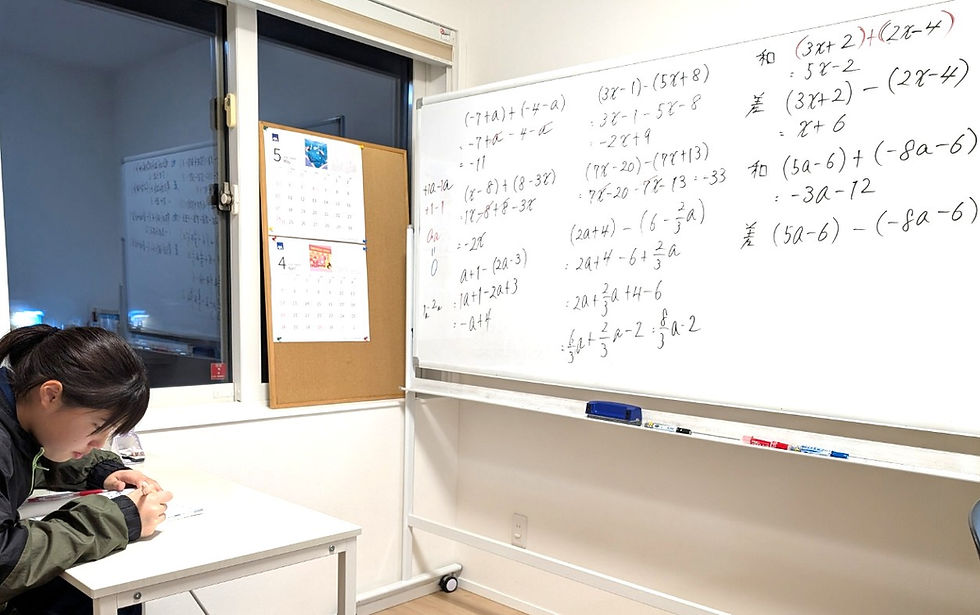 5
4
(-7+a)+(-4-a)
=-7+a-4-a
=-11
+1a-1a
+1-1
0a
=
0
(x-8)+(8-3x)
=1x-8+8-3x
=-2x
a+1-(2a-3)
=1a+1-2a+3
=-a+4
(3x-1)-(5x+8)
=3x-1-5x-8
=-2x+9
(7x-20)-(7x+13)
=7x-20-7x-13=-33
(2a+4)-(6-2/3a)
=2a+4-6+2/3a
=2a+2/3a+4-6
=6/3a+2/3a-2=8/3a-2
和 (3x+2)+(2x-4)
=5x-2
差 (3x+2)-(2x-4)
=x+6
和 (5a-6)+(-8a-6)
=-3a-12
差 (5a-6)-(-8a-6)